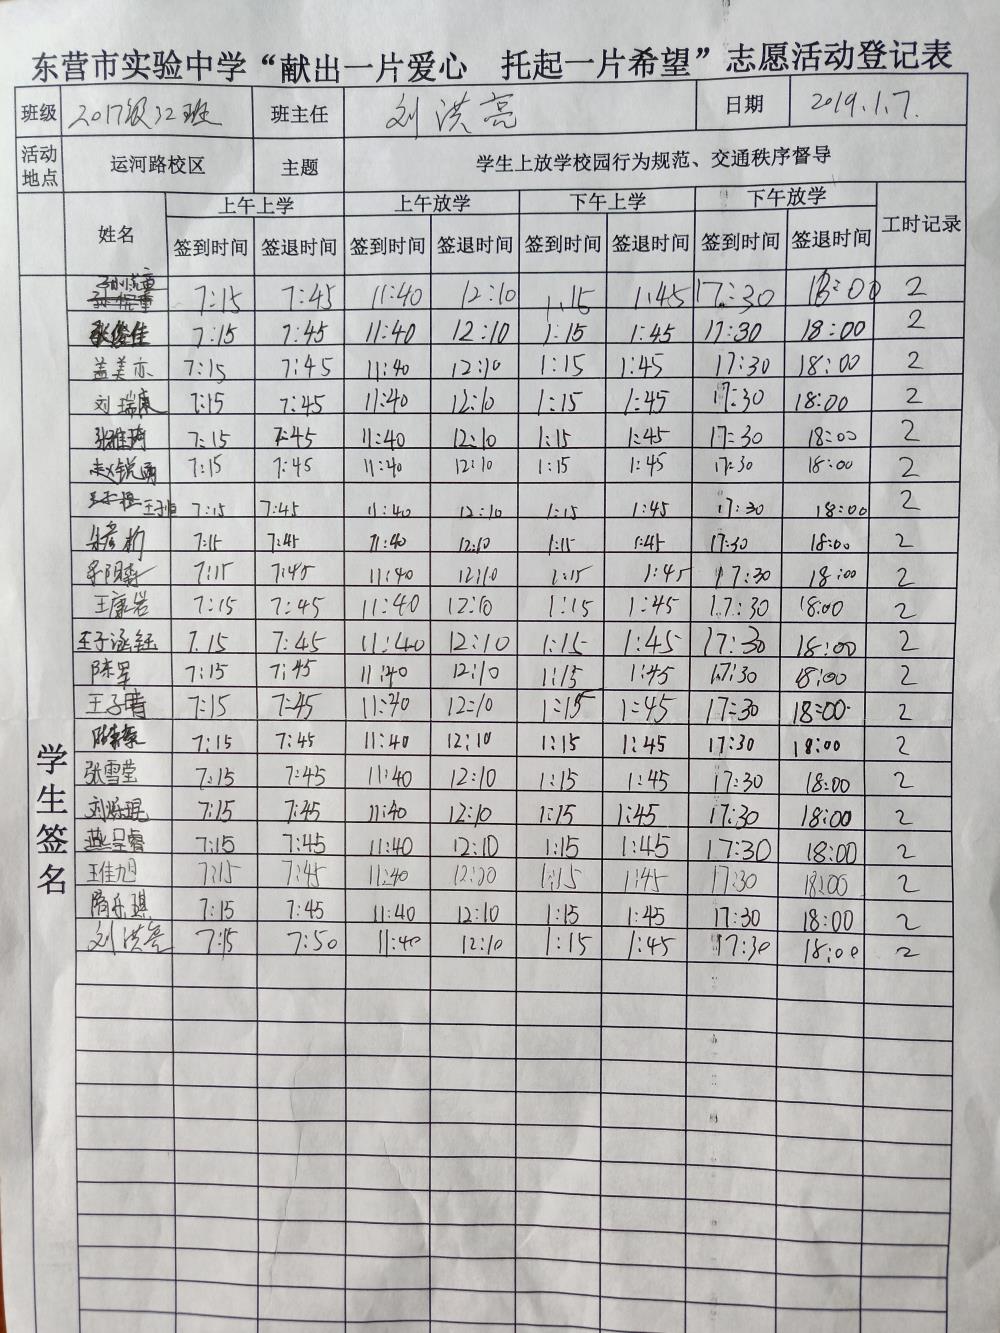 东营市实验中学“献出一片爱心 托起一片希望”志愿活动登记表
班级 2017级32班 班主任 刘洪亮 日期 2019.1.7.
活动地点 运河路校区 主题 学生上放学校园行为规范、交通秩序督导
姓名 上午上学 上午放学 下午上学 下午放学 工时记录
签到时间 签退时间 签到时间 签退时间 签到时间 签退时间 签到时间 签退时间
7:15 7:45 11:40 12:10 1:15 1:45 17:30 18:00 2
张俊佳 7:15 7:45 11:40 12:10 1:15 1:45 17:30 18:00 2
盖美亦 7:15 7:45 11:40 12:10 1:15 1:45 17:30 18:00 2
刘瑞康 7:15 7:45 11:40 12:10 1:15 1:45 17:30 18:00 2
张雅琦 7:15 7:45 11:40 12:10 1:15 1:45 17:30 18:00 2
赵锐勇 7:15 7:45 11:40 12:10 1:15 1:45 17:30 18:00 2
王子恒 7:15 7:45 11:40 12:10 1:15 1:45 17:30 18:00 2
7:15 7:45 11:40 12:10 1:15 1:45 17:30 18:00 2
7:15 7:45 11:40 12:10 1:15 1:45 17:30 18:00 2
王康岩 7:15 7:45 11:40 12:10 1:15 1:45 17:30 18:00 2
王子涵钰 7.15 7:45 11:40 12:10 1:15 1:45 17:30 18:00 2
陈军 7:15 7:45 11:40 12:10 1:15 1:45 17:30 18:00 2
王子晴 7:15 7:45 11:40 12:10 1:15 1:45 17:30 18:00 2
7:15 7:45 11:40 12:10 1:15 1:45 17:30 18:00 2
张雪莹 7:15 7:45 11:40 12:10 1:15 1:45 17:30 18:00 2
7:15 7:45 11:40 12:10 1:15 1:45 17:30 18:00 2
燕呈睿 7:15 7:45 11:40 12:10 1:15 1:45 17:30 18:00 2
王佳旭 7:15 7:45 11:40 12:20 1:15 1:45 17:30 18:00 2
隋乐琪 7:15 7:45 11:40 12:10 1:15 1:45 17:30 18:00 2
刘洪亮 7:15 7:50 11:40 12:10 1:15 1:45 17:30 18:00 2
学生签名